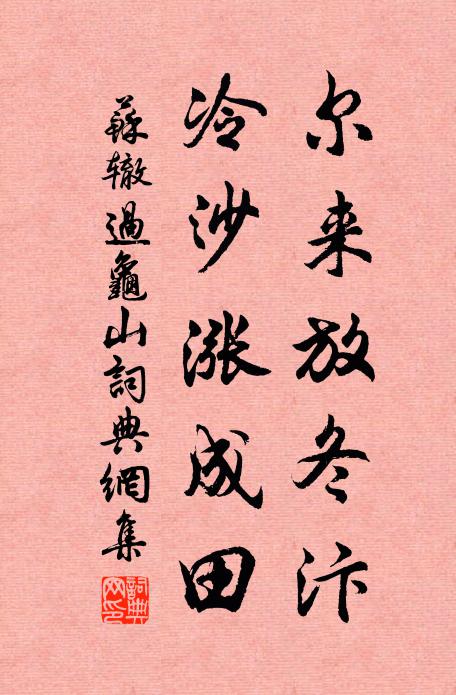 尔来放冬汴
冷沙涨成田
蘇辙過龜山詞典網集
詞典网印